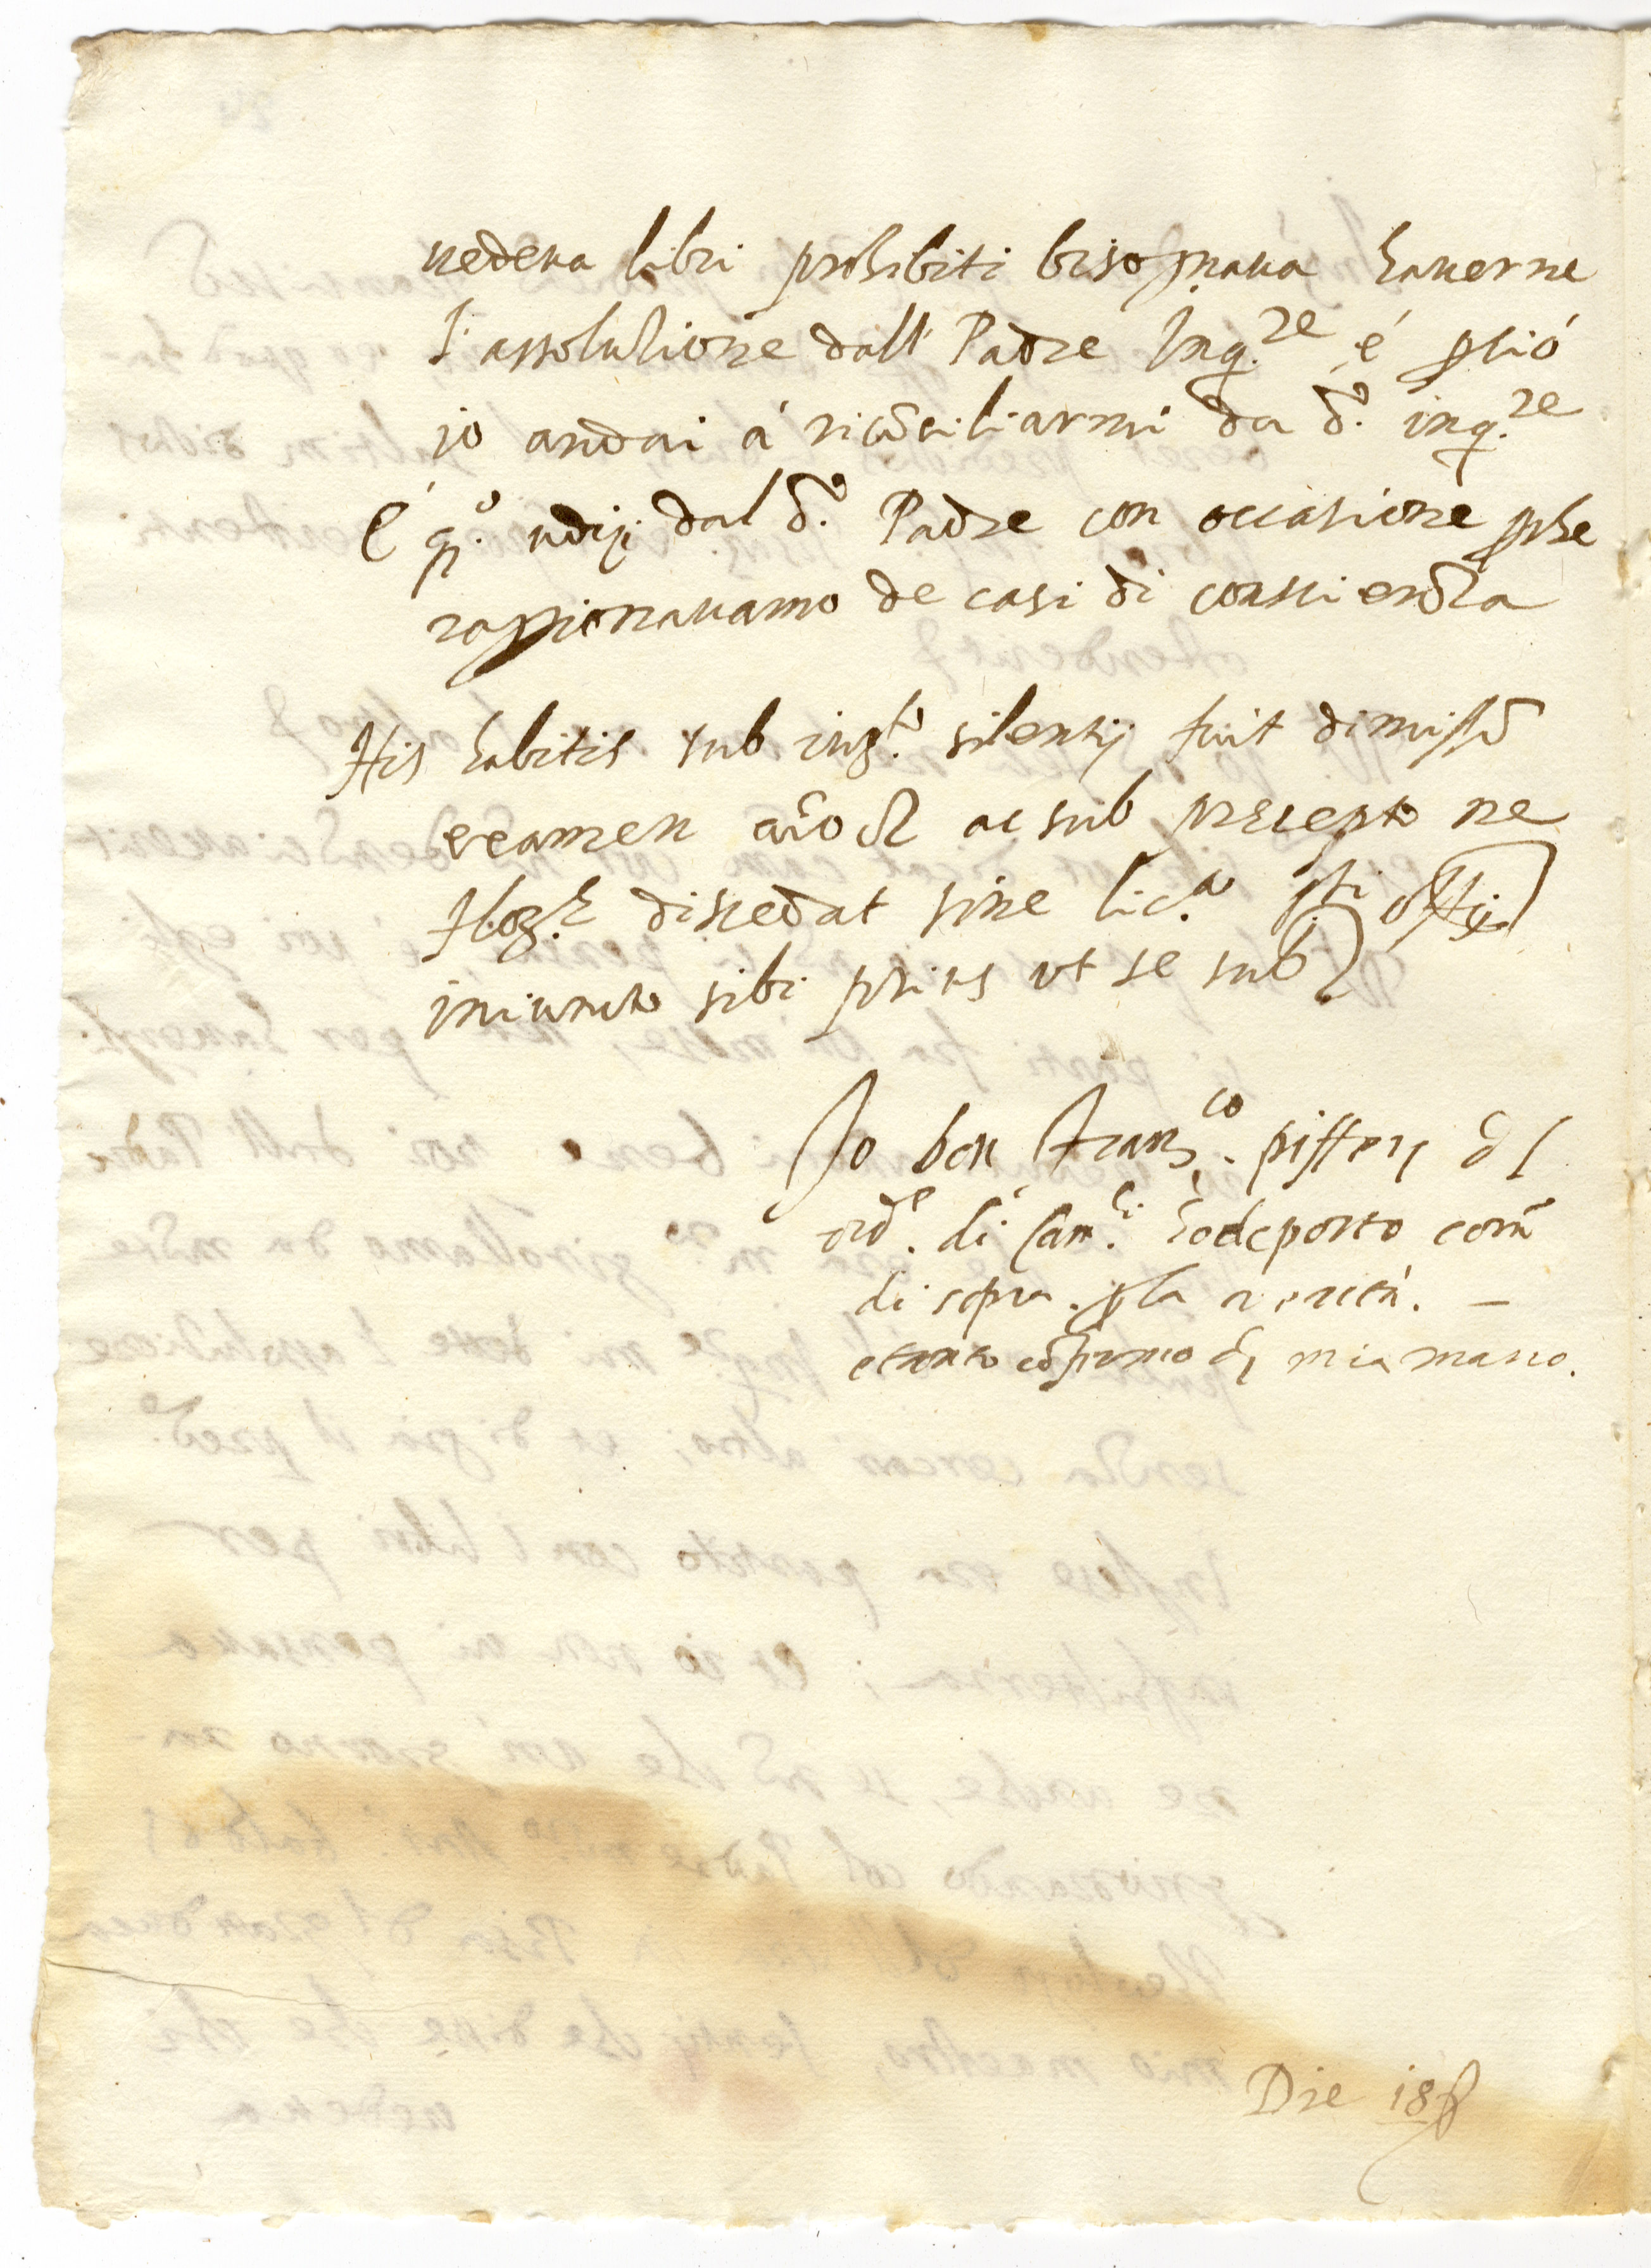 uedeua libri prohibiti bisognaua hauerne
l'assolutione dall' Padre Inq.re é p ció
io andai á ricõciliarmi da d.o inq.re
É q.o udij dal d.o Padre con occasione pche
raggionauamo de casi di conscienza
His habitis sub iur.to silentij fuit dimissũ
examen aĩo ac sub precepto ne
discedat sine lic.a sti offitij
iniuncto sibi prius ut se sub
Io bon Franc.co pifferi
ord.e di Cam.li hò deposto com̃
di sopra. p la verità. —
et tanto cõfirmo di mia mano.
Die 18